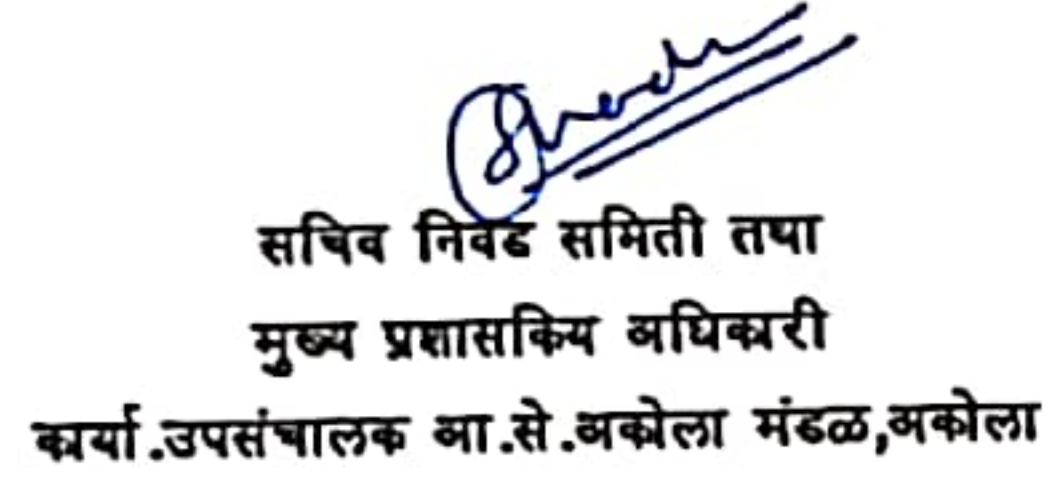 सचिव निवड समिती तथा
मुख्य प्रशासकिय अधिकारी
कार्या.उपसंचालक आ.से.अकोला मंडळ,अकोला